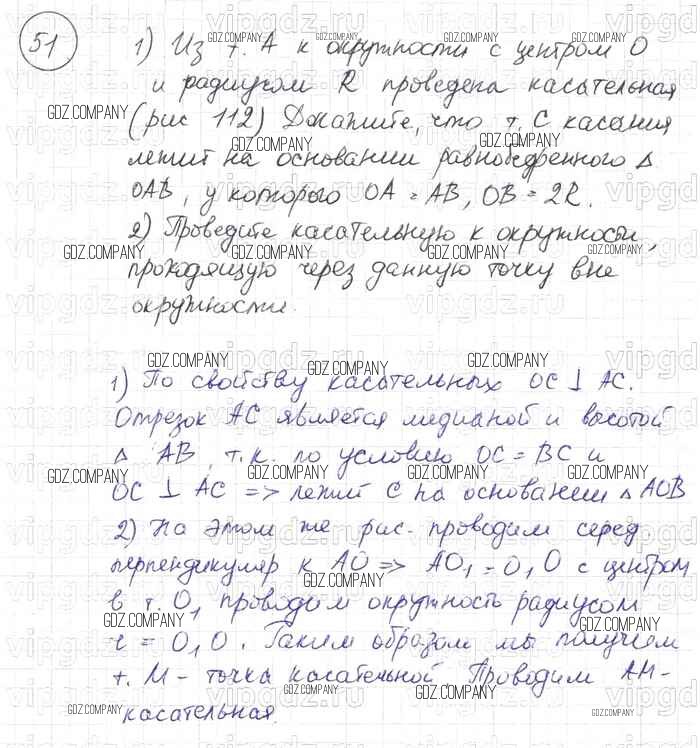 51
1) Из т. А к окружности с центром О
и радиусом R проведена касательная
(рис 112) Докажите, что т. С касания
лежит на основании равнобедренного Δ
ОАВ, у которого ОА = АВ, ОВ = 2R.
2) Проведите касательную к окружносы,
проходящую через данную точку вне
окружности.
1) По свойству касательных ОС ⊥ АС.
Отрезок АС является медианой и высотой
Δ АВ, т.к. по условию ОС = ВС и
ОС ⊥ АС => лежит С на основании Δ АОВ
2) На этом же рис. проводим серед.
перпендикуляр к АО => АО₁ = О₁О с центром
в т. О₁ проводим окружность радиусом
r = О₁О. Таким образом мы получаем
т. М - точка касательной. Проводим АМ-
касательная.
GDZ.COMPANY
vipgdz.ru